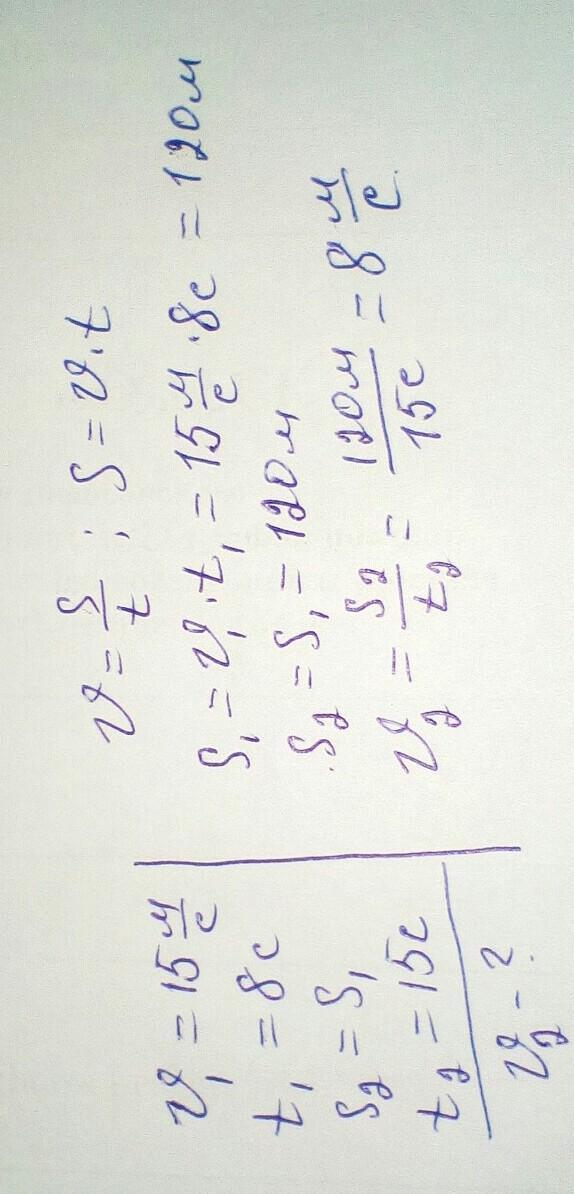 v₁ = 15 м/с
t₁ = 8с
S₂ = S₁
t₂ = 15с
v₂ - ?
v = S/t ; S = v · t
S₁ = v₁ · t₁ = 15 м/с · 8с = 120м
S₂ = S₁ = 120м
v₂ = S₂/t₂ = 120м/15с = 8 м/с